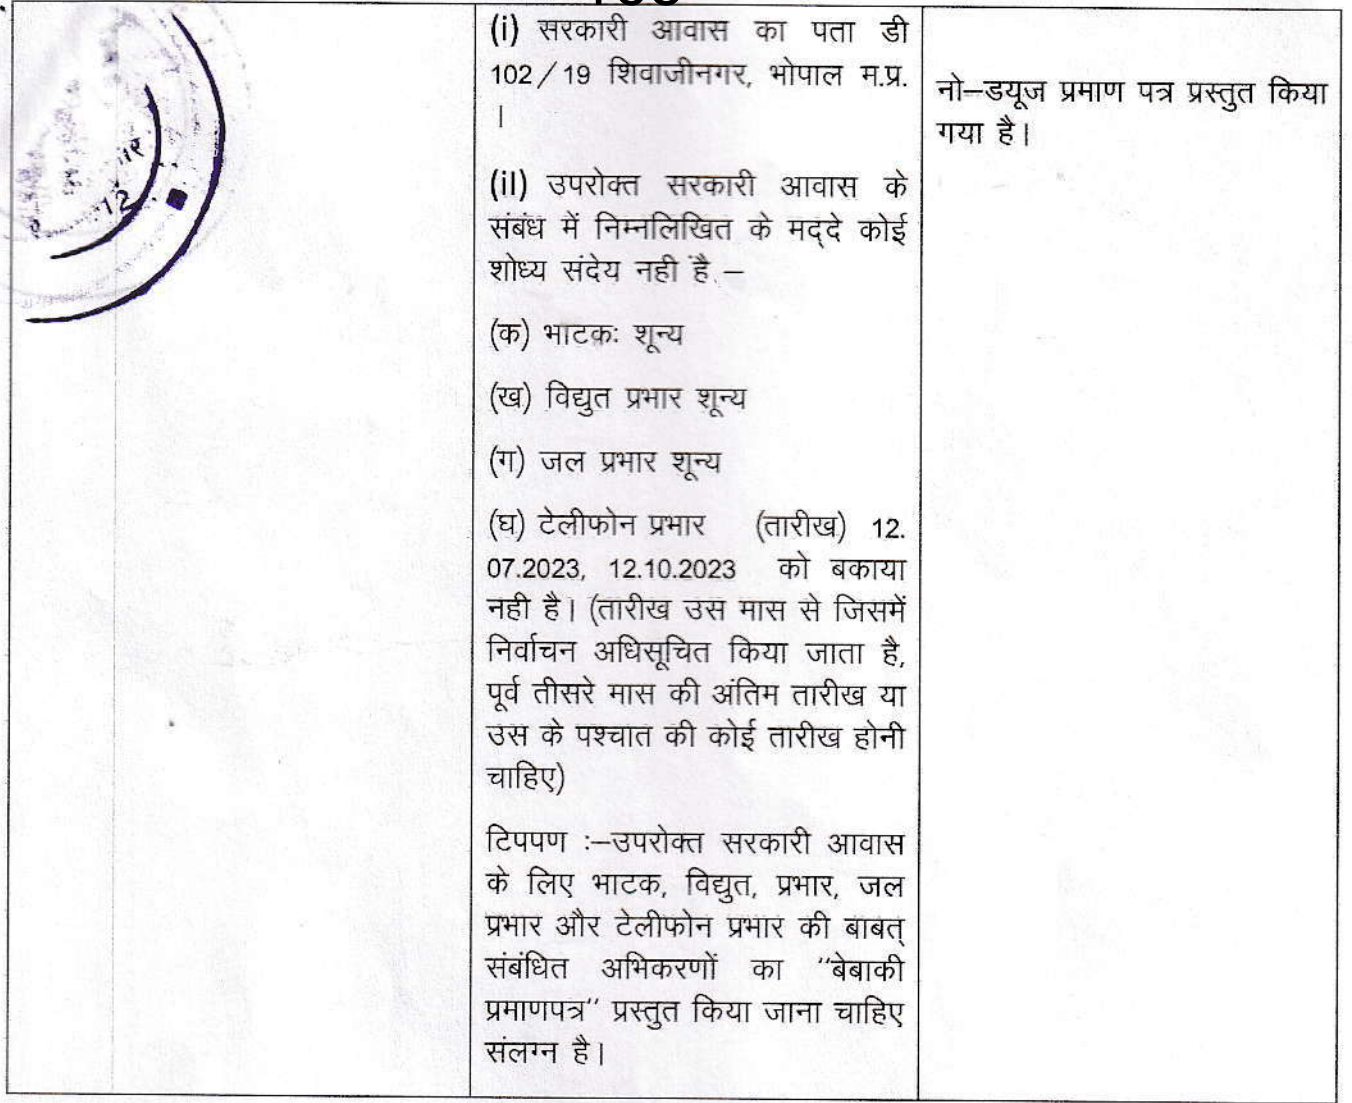 (i) सरकारी आवास का पता डी
102/19 शिवाजीनगर, भोपाल म.प्र.
।
(ii) उपरोक्त सरकारी आवास के
संबंध में निम्नलिखित के मद्‌दे कोई
शोध्य संदेय नही है –
(क) भाटकः शून्य
(ख) विद्युत प्रभार शून्य
(ग) जल प्रभार शून्य
(घ) टेलीफोन प्रभार (तारीख) 12.
07.2023, 12.10.2023 को बकाया
नही है। (तारीख उस मास से जिसमें
निर्वाचन अधिसूचित किया जाता है,
पूर्व तीसरे मास की अंतिम तारीख या
उस के पश्चात की कोई तारीख होनी
चाहिए)
टिपपण :–उपरोक्त सरकारी आवास
के लिए भाटक, विद्युत, प्रभार, जल
प्रभार और टेलीफोन प्रभार की बाबत्
संबंधित अभिकरणों का ''बेबाकी
प्रमाणपत्र'' प्रस्तुत किया जाना चाहिए
संलग्न है।
नो–डयूज प्रमाण पत्र प्रस्तुत किया
गया है।